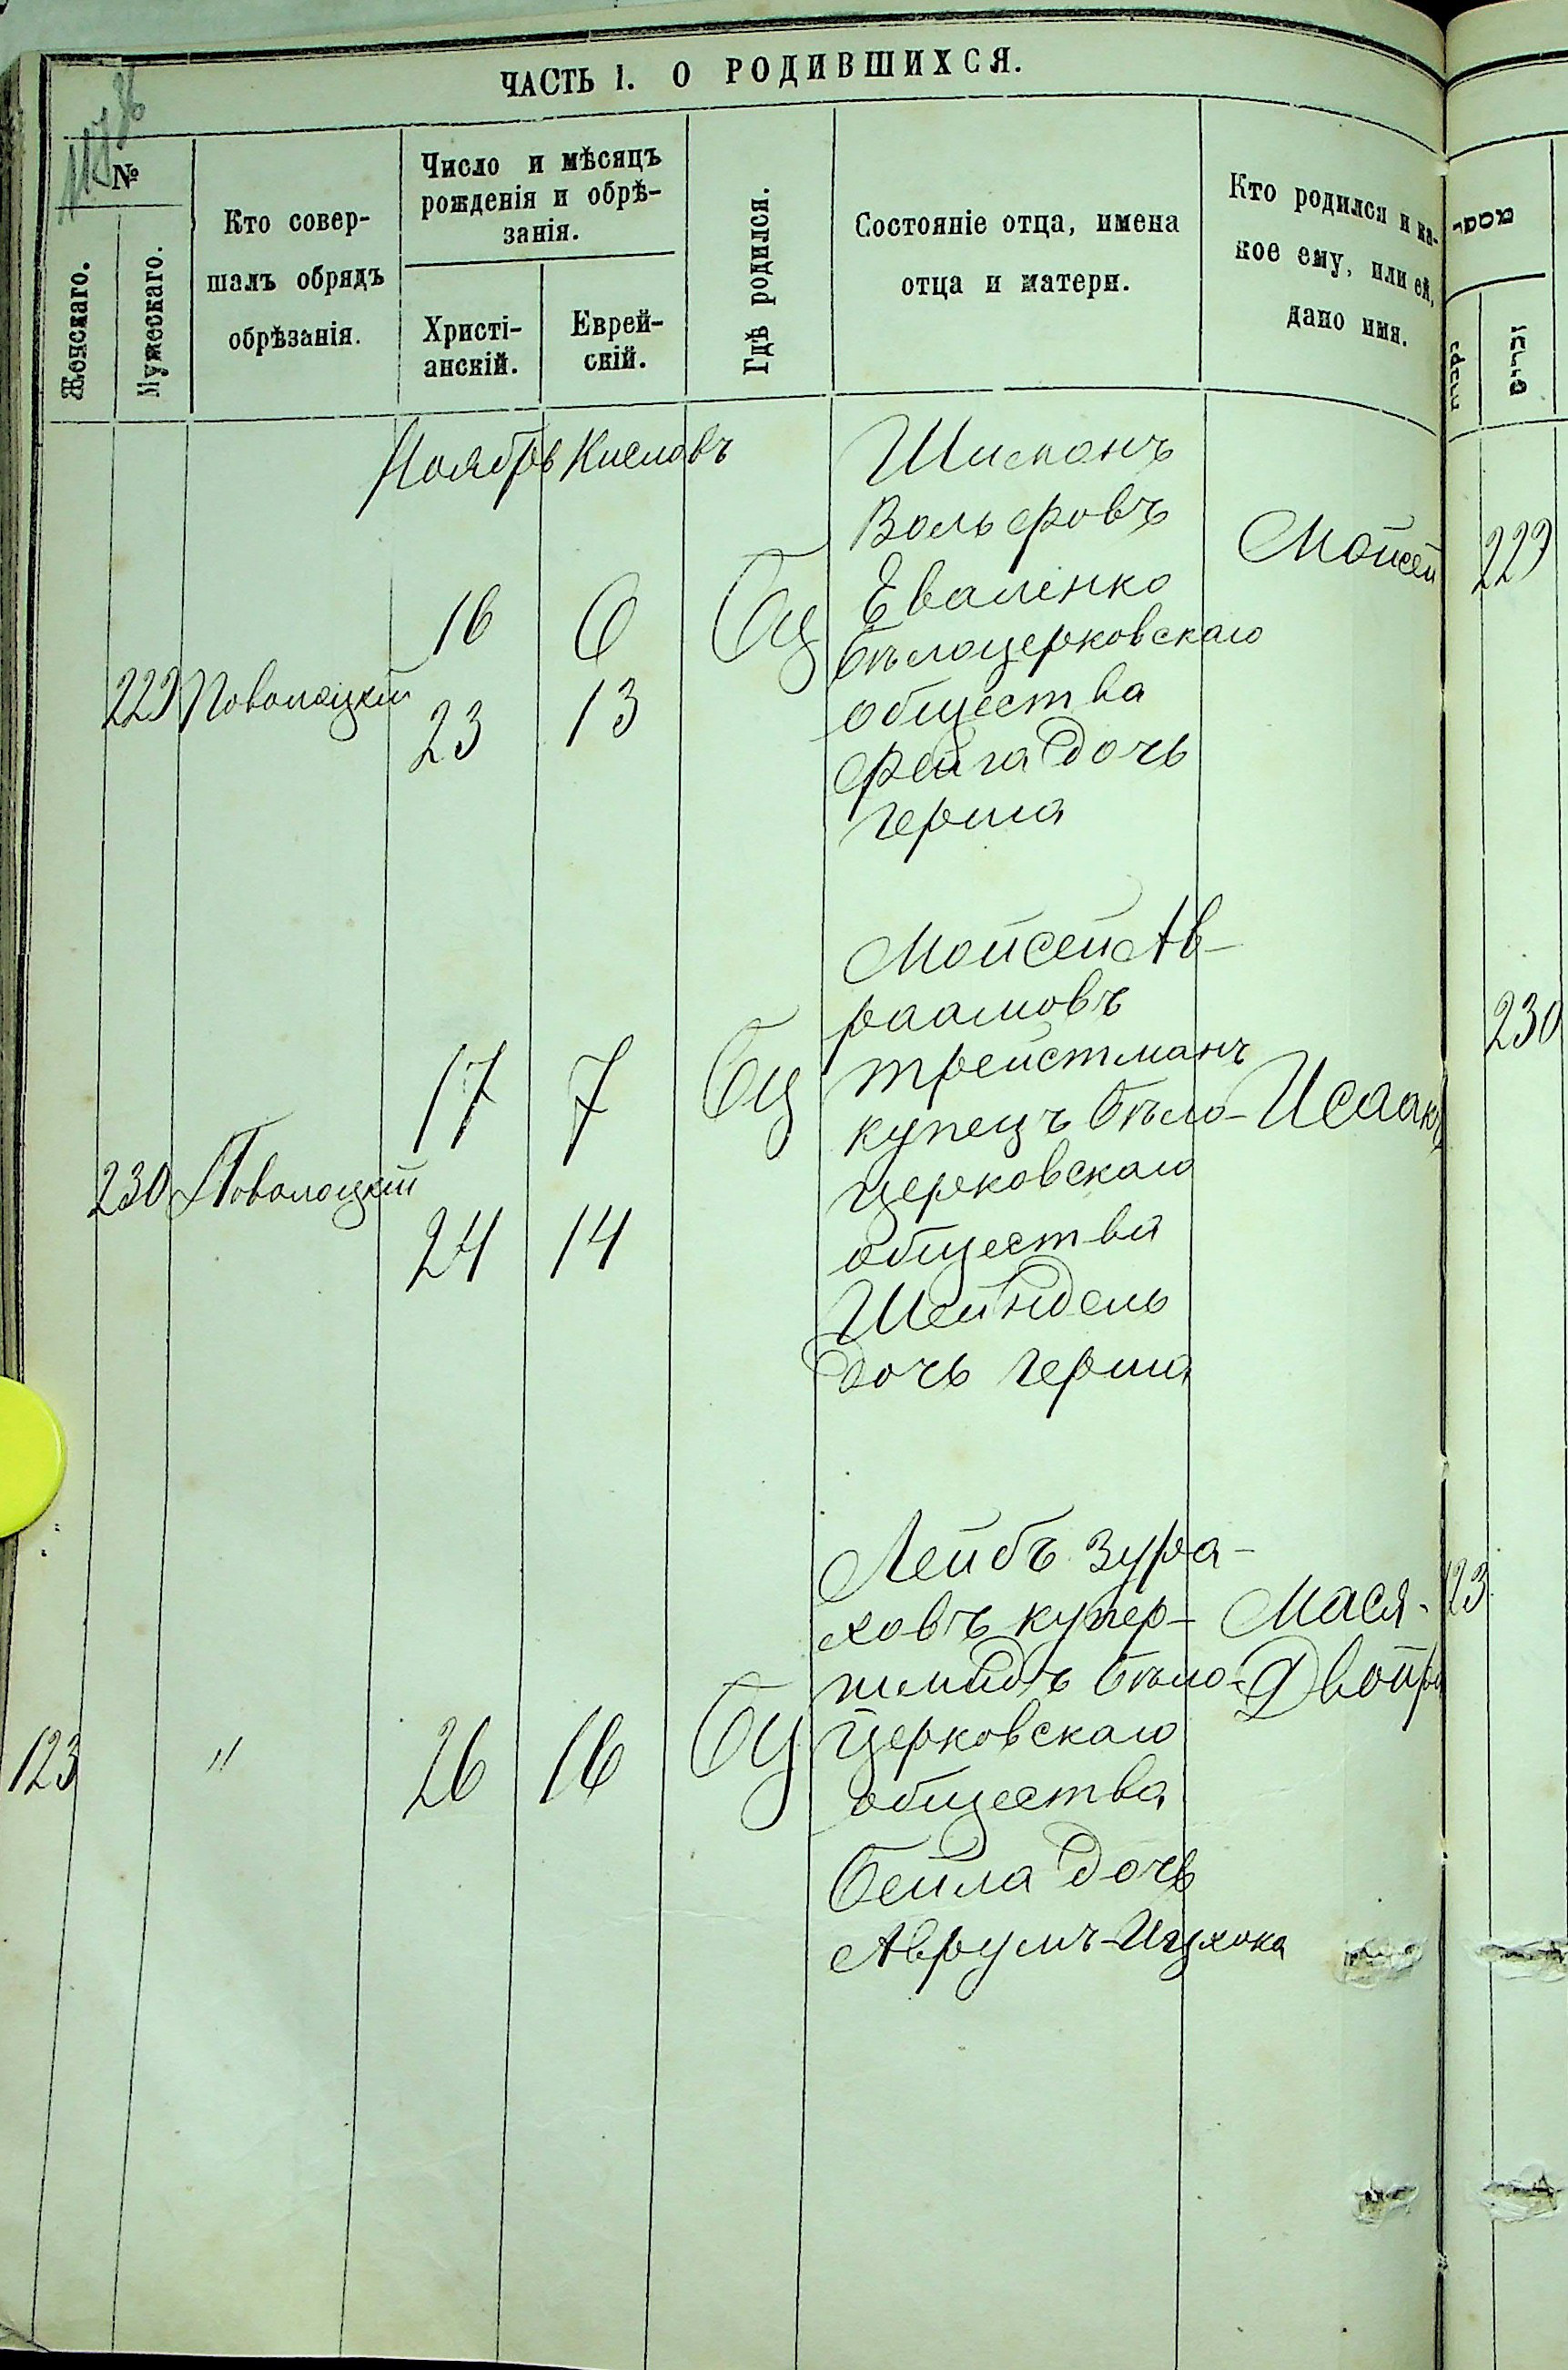 ЧАСТЬ I. О РОДИВШИХСЯ.
№
Женскаго.
Мужескаго.
Кто совер-
шалъ обрядъ
обрѣзанія.
Число и мѣсяцъ
рожденія и обрѣ-
занія.
Христі-
анскій.
Еврей-
скій.
Гдѣ родился.
Состояніе отца, имена
отца и матери.
Кто родился и ка-
кое ему, или ей,
дано имя.
Ноябрь Кислевъ
229 Поволоцкій
16 6
23 13
Бц
Шисманъ
Вольфовъ
Еваленко
Бѣлоцерковскаго
общества
Фейга дочь
Герша
Мойсей
229
230 Поволоцкій
17 7
24 14
Бц
Мойсей Ав-
раамовъ
Трейстманъ
купецъ Бѣло-
церковскаго
общества
Шейндель
дочь Герша
Исаакъ
230
123 "
26 16
Бц
Лейбъ Зура-
ховъ Купер-
шмидъ Бѣло-
церковскаго
общества
Бейла дочь
Аврумъ-Ицхока
Мася-
Двойра
123